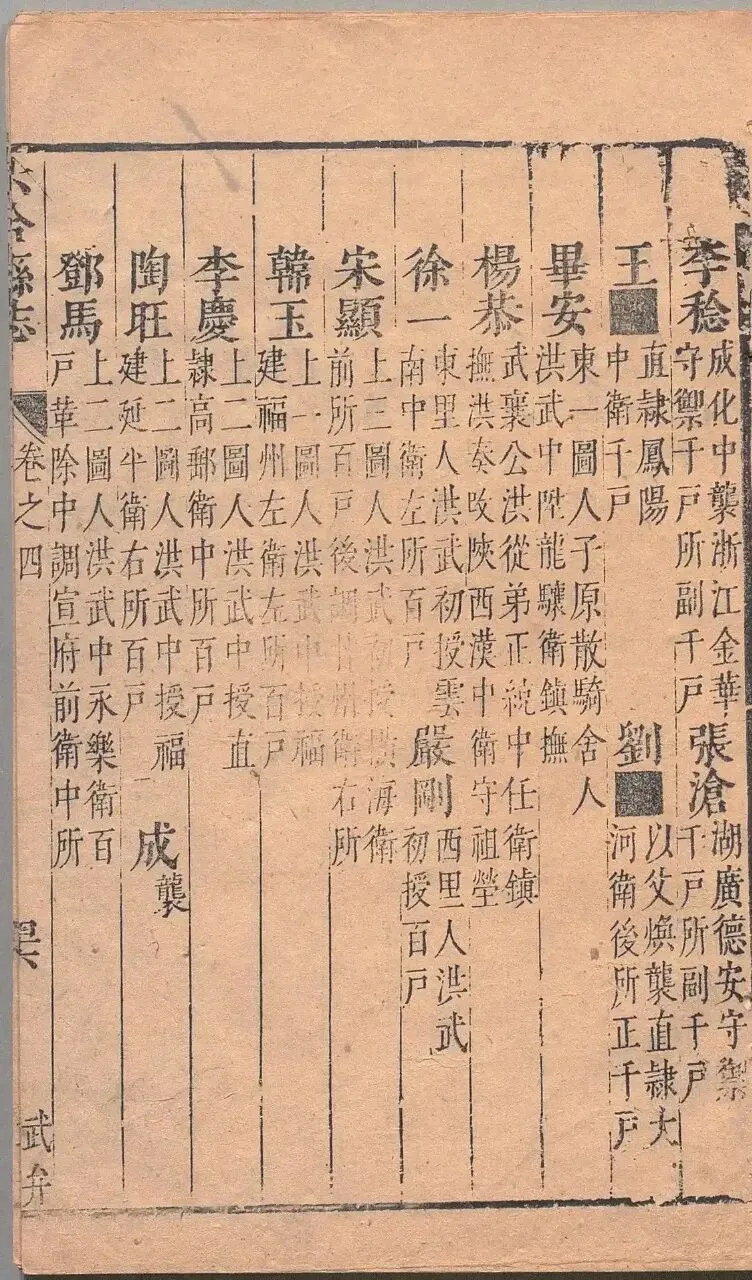 李稔
成化中襲浙江金華
守禦千戶所副千戶
張滄
湖廣德安守禦
千戶所副千戶
王
直隸鳳陽
中衛千戶
劉
以父煥襲直隸大
河衛後所正千戶
畢安
東一圖人子原散騎舍人
洪武中陞龍驤衛鎮撫
楊恭
武襄公洪從弟正統中任衛鎮
撫洪奏攺陝西漢中衛守祖塋
徐一
東里人洪武初授雲
南中衛左所百戶
嚴剛
西里人洪武
初授百戶
宋顯
上三圖人洪武初授橫海衛
前所百戶後調甘州衛右所
韓玉
上一圖人洪武中授福
建福州左衛左所百戶
李慶
上二圖人洪武中授直
隸高郵衛中所百戶
陶旺
上二圖人洪武中授福
建延平衛右所百戶
成襲
鄧馬
上二圖人洪武中永樂衛百
戶革除中調宣府前衛中所
六合縣志
卷之四
武弁